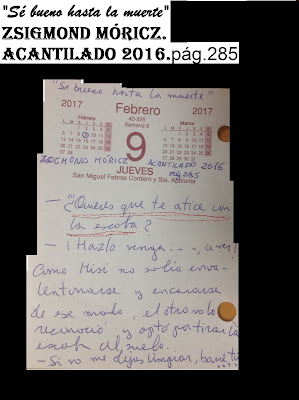 "Sé bueno hasta la muerte"
ZSIGMOND MÓRICZ.
ACANTILADO 2016.pág.285
"Sé bueno hasta la muerte"
2017 Febrero 2017
Febrero 40-325 Marzo
Semana 6
9
ZSIGMOND MÓRICZ ACANTILADO 2016
pág 285
JUEVES
San Miguel Febres Cordero y Sta. Apolonia
- "¿Quieres que te atice con
la escoba?
- ¡Hazlo venga...,
Como Misi no solía enva-
lentonarse y encararse
de ese modo, el otro no lo
reconoció y optó por tirar la
escoba al suelo.
- Si no me dejas limpiar, barre tú